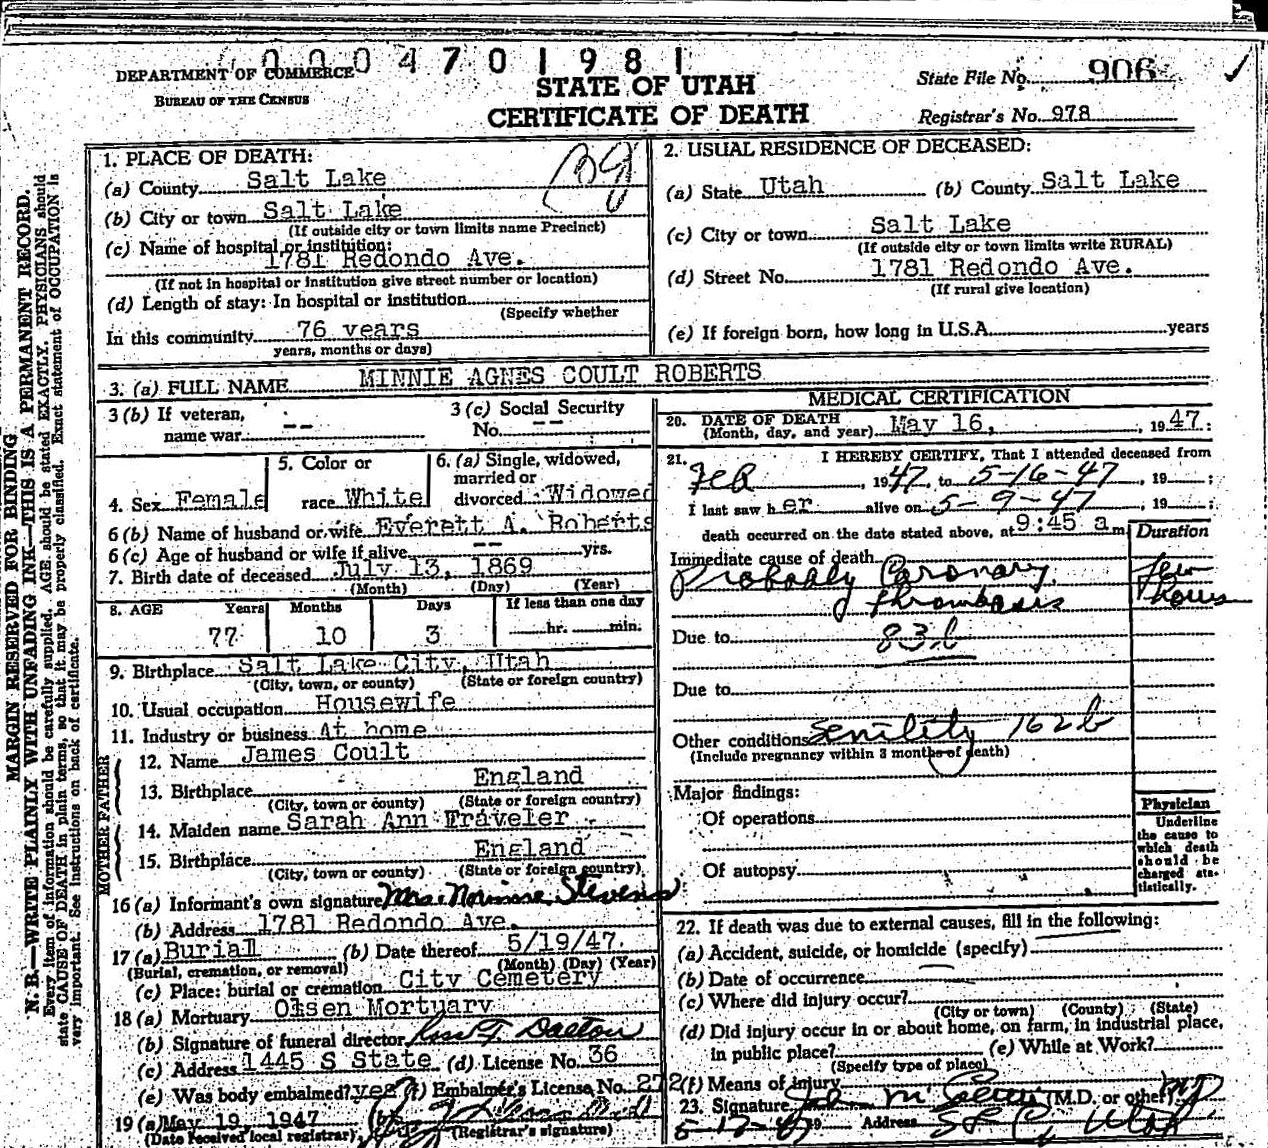 0 0 0 4 7 0 1 9 8 1
DEPARTMENT OF COMMERCE
BUREAU OF THE CENSUS
STATE OF UTAH
CERTIFICATE OF DEATH
State File No. 906
Registrar's No. 978
MARGIN RESERVED FOR BINDING
N. B.—WRITE PLAINLY WITH UNFADING INK—THIS IS A PERMANENT RECORD.
Every item of information should be carefully supplied. AGE should be stated EXACTLY. PHYSICIANS should
state CAUSE OF DEATH in plain terms, so that it may be properly classified. Exact statement of OCCUPATION is
very important. See instructions on back of certificate.
1. PLACE OF DEATH:
(a) County Salt Lake
(b) City or town Salt Lake
(If outside city or town limits name Precinct)
(c) Name of hospital or institution:
1781 Redondo Ave.
(If not in hospital or institution give street number or location)
(d) Length of stay: In hospital or institution
(Specify whether
In this community 76 years
years, months or days)
2. USUAL RESIDENCE OF DECEASED:
(a) State Utah (b) County Salt Lake
(c) City or town Salt Lake
(If outside city or town limits write RURAL)
(d) Street No. 1781 Redondo Ave.
(If rural give location)
(e) If foreign born, how long in U.S.A. years
3. (a) FULL NAME MINNIE AGNES COULT ROBERTS
3 (b) If veteran, name war --
3 (c) Social Security No. --
4. Sex Female
5. Color or race White
6. (a) Single, widowed, married or divorced Widowed
6 (b) Name of husband or wife Everett A. Roberts
6 (c) Age of husband or wife if alive -- yrs.
7. Birth date of deceased July 13, 1869
(Month) (Day) (Year)
8. AGE Years Months Days If less than one day
77 10 3 hr. min.
9. Birthplace Salt Lake City, Utah
(City, town, or county) (State or foreign country)
10. Usual occupation Housewife
11. Industry or business At home
FATHER
12. Name James Coult
13. Birthplace England
(City, town or county) (State or foreign country)
MOTHER
14. Maiden name Sarah Ann Traveler
15. Birthplace England
(City, town or county) (State or foreign country)
16 (a) Informant's own signature Mrs. Stevens
(b) Address 1781 Redondo Ave.
17 (a) Burial (b) Date thereof 5/19/47.
(Burial, cremation, or removal) (Month) (Day) (Year)
(c) Place: burial or cremation City Cemetery
18 (a) Mortuary Olsen Mortuary
(b) Signature of funeral director Dalton
(c) Address 1445 S State (d) License No. 36
(e) Was body embalmed? yes (f) Embalmer's License No. 272
19 (a) May 19, 1947 (b)
(Date received local registrar) (Registrar's signature)
MEDICAL CERTIFICATION
20. DATE OF DEATH
(Month, day, and year) May 16, , 1947.
21. I HEREBY CERTIFY, That I attended deceased from
Feb , 1947, to 5-16-47 , 19 ;
I last saw her alive on 5-9-47 , 19 ;
death occurred on the date stated above, at 9:45 a m
Duration
Immediate cause of death
Probably Coronary thrombosis
few hours
Due to 83b
Due to
Other conditions Senility 162b
(Include pregnancy within 3 months of death)
Major findings:
Of operations
Of autopsy
Physician
Underline
the cause to
which death
should be
charged sta-
tistically.
22. If death was due to external causes, fill in the following:
(a) Accident, suicide, or homicide (specify)
(b) Date of occurrence
(c) Where did injury occur?
(City or town) (County) (State)
(d) Did injury occur in or about home, on farm, in industrial place,
in public place? (e) While at Work?
(Specify type of place)
(f) Means of injury
23. Signature (M.D. or other)
Address S L C, Utah